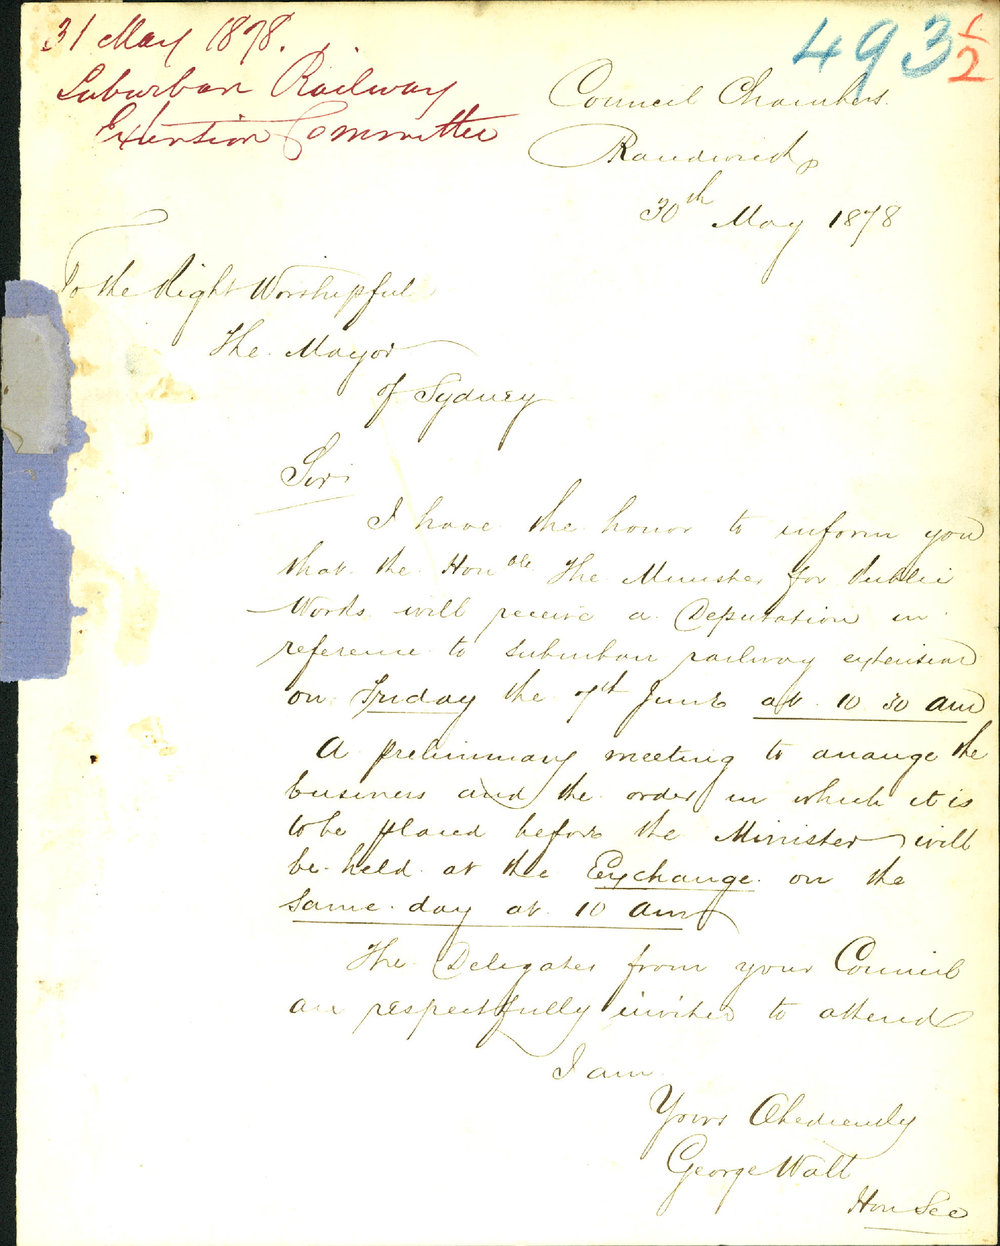 31 May 1878.
Suburban Railway
Extension Committee
493 1/2
Council Chambers
Randwick
30th May 1878
To the Right Worshipful
The Mayor
of Sydney
Sir
I have the honor to inform you
that the Honble The Minister for Public
Works will receive a Deputation in
reference to suburban railway extension
on Friday the 7th June at 10 30 am
A preliminary meeting to arrange the
business and the order in which it is
to be placed before the Minister will
be held at the Exchange on the
same day at 10 am
The Delegates from your Council
are respectfully invited to attend
I am
Yours Obediently
George Watt
Hon Sec